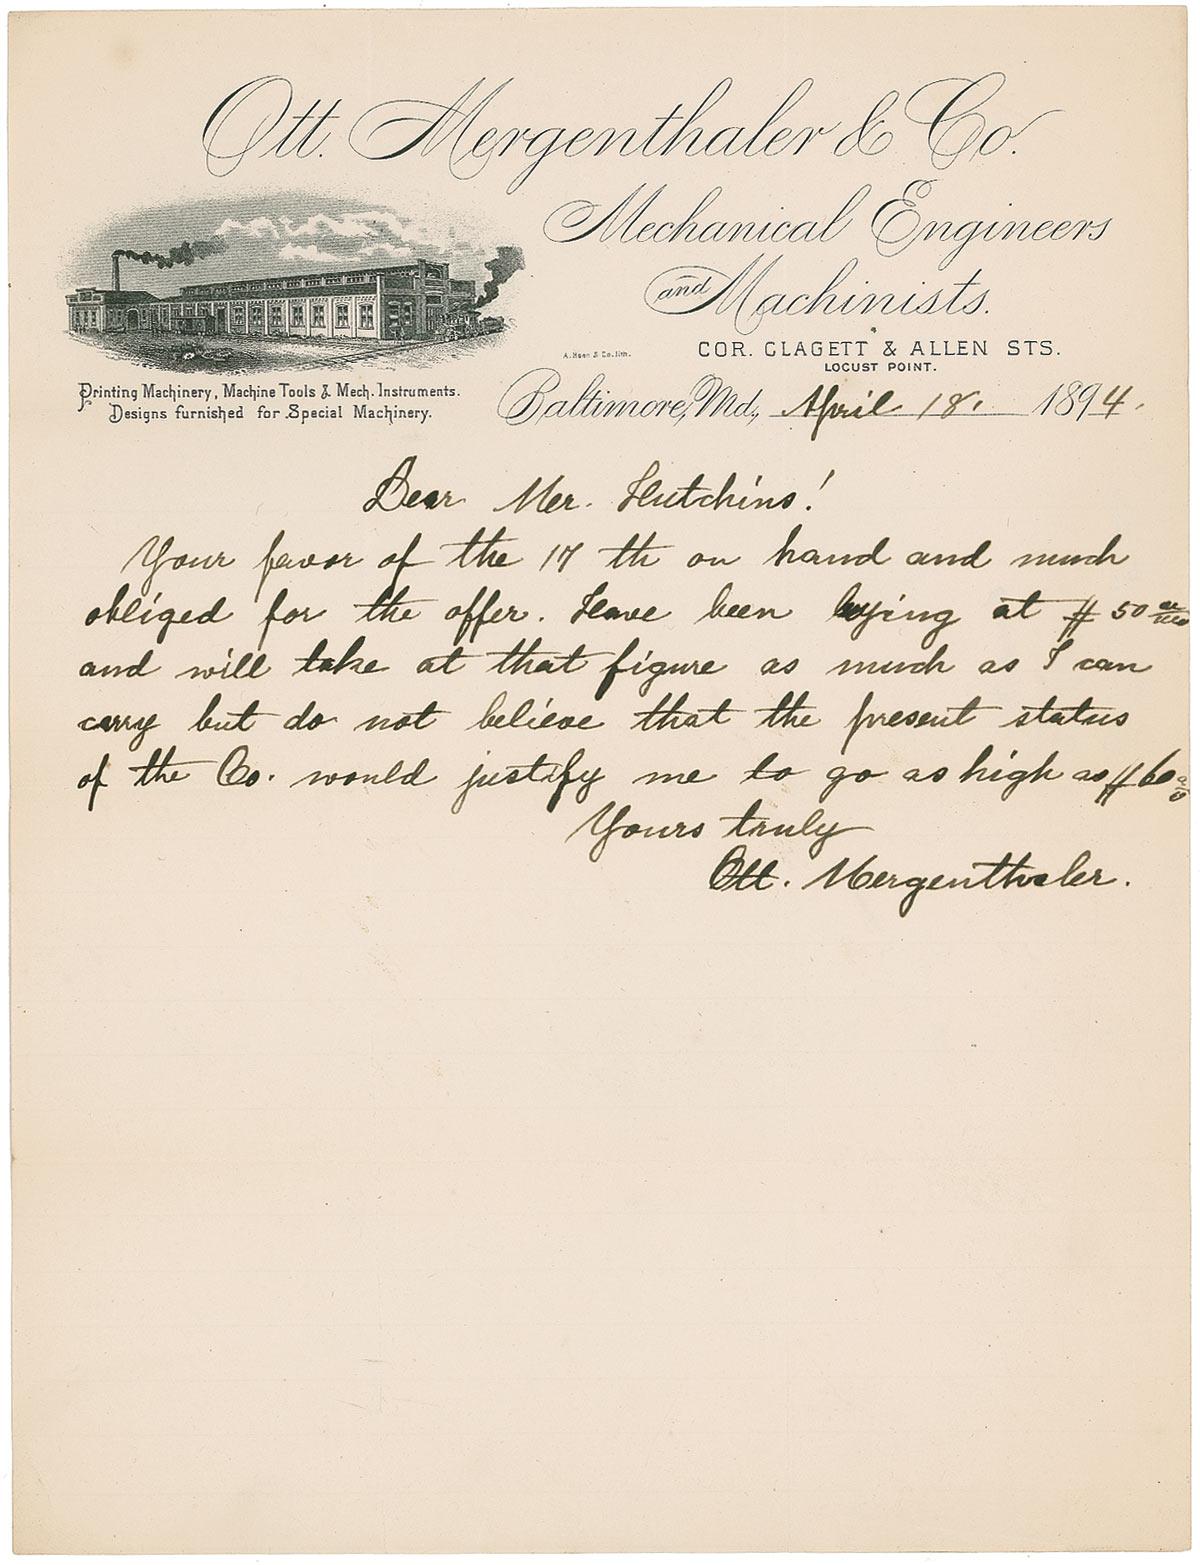 Ott. Mergenthaler & Co.
Mechanical Engineers
and Machinists.
A. Hoen & Co. lith.
COR. CLAGETT & ALLEN STS.
LOCUST POINT.
Printing Machinery, Machine Tools & Mech. Instruments.
Designs furnished for Special Machinery.
Baltimore, Md., April 18. 1894.
Dear Mer. Hutchins!
Your favor of the 17 th on hand and much
obliged for the offer. Have been buying at $ 50
and will take at that figure as much as I can
carry but do not believe that the present status
of the Co. would justify me to go as high as $ 60
Yours truly
Ott. Mergenthaler.